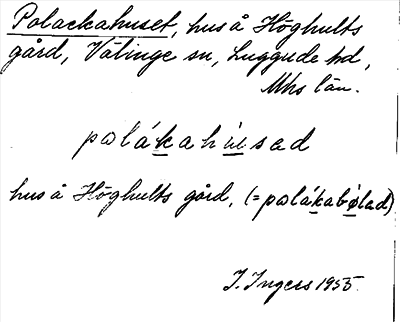 Polackahuset, hus å Höghults
gård, Välinge sn, Luggude hd,
Mhs län.
palákahúsad
hus å Höghults gård, (= palákabǿlad)
I. Ingers 1955.